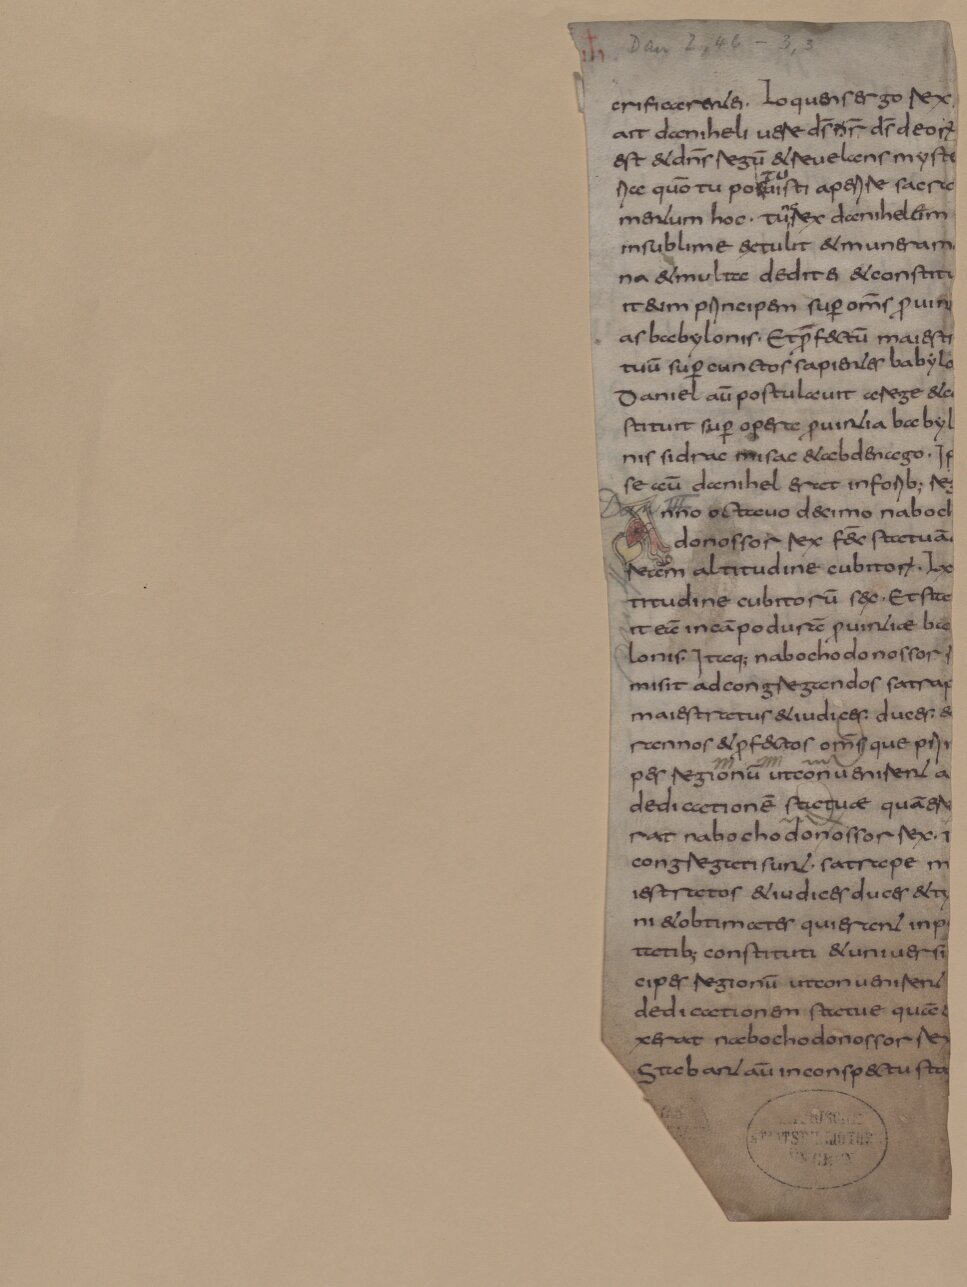 Dan 2,46 – 3,3
crificarent ei. Loquens ergo rex
ait daniheli uere ds nr ds deorum
est & dns regū & reuelans myste
ria quō tu potuisti aperire sacra
mentum hoc. tūc rex danihelem
in sublime extulit & munera m
na & multa dedit ei & constitu
it eum principem sup oms prouin
as babylonis. Et prfectū maiestr
tuū sup cunctos sapientes babylo
Daniel aū postulauit a rege & co
stituit sup opera prouintia babyl
nis sidrac misac & abdenago. Ip
se aū danihel erat in forib; reg
Dan III
Anno octauo decimo naboch
donossor rex fec statuā
ream altitudine cubitorum. Lx
titudine cubitorū sex. Et state
it eā in cāpo durā prouintiae ba
lonis. Itaq; nabochodonossor r
misit ad congregandos satrap
maiestratus & iudices. duces. &
rannos & pfectos omsque prin
pes regionū ut conuenirent a
dedicationē statuae quā ere
rat nabochodonossor rex. t
congregati sunt. satrape m
iestratos & iudices duces & ty
ni & obtimates qui erant in p
tatib; constituti & uniuersi
cipes regionū ut conuenirent
dedicationem statue quā e
xerat nabochodonossor re
Stabant aū in conspectu sta